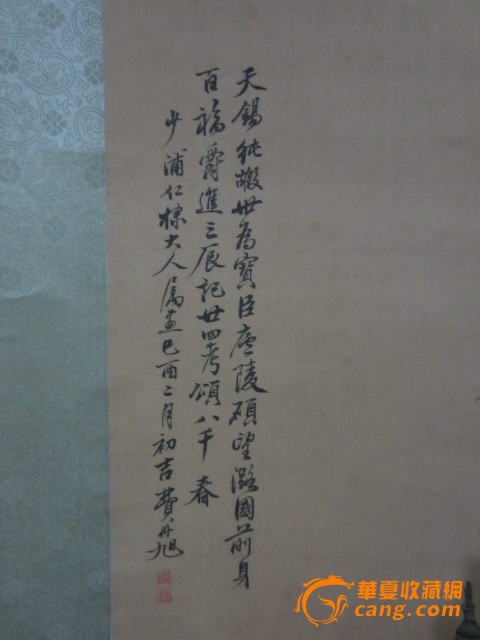 天錫純嘏世為寶臣廬陵碩望潞國前身
百福爵進三辰記世四考頌八千春
少浦仁棣大人屬畫己酉二月初吉費丹旭
華夏收藏網
cang.com